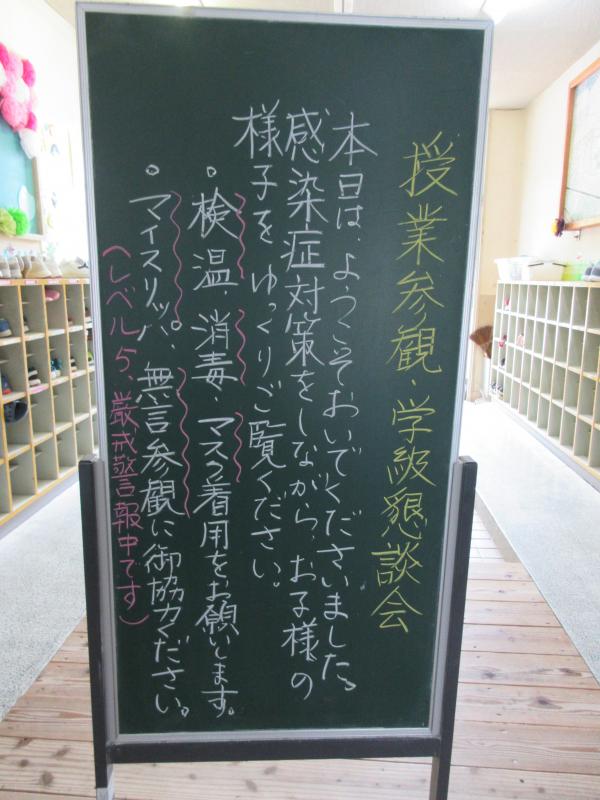 授業参観・学級懇談会
本日は、ようこそおいでくださいました。
感染症対策をしながら、お子様の
様子をゆっくりご覧ください。
・検温、消毒、マスク着用をお願いします。
・マイスリッパ、無言参観に御協力ください。
（レベル5、厳戒警報中です）